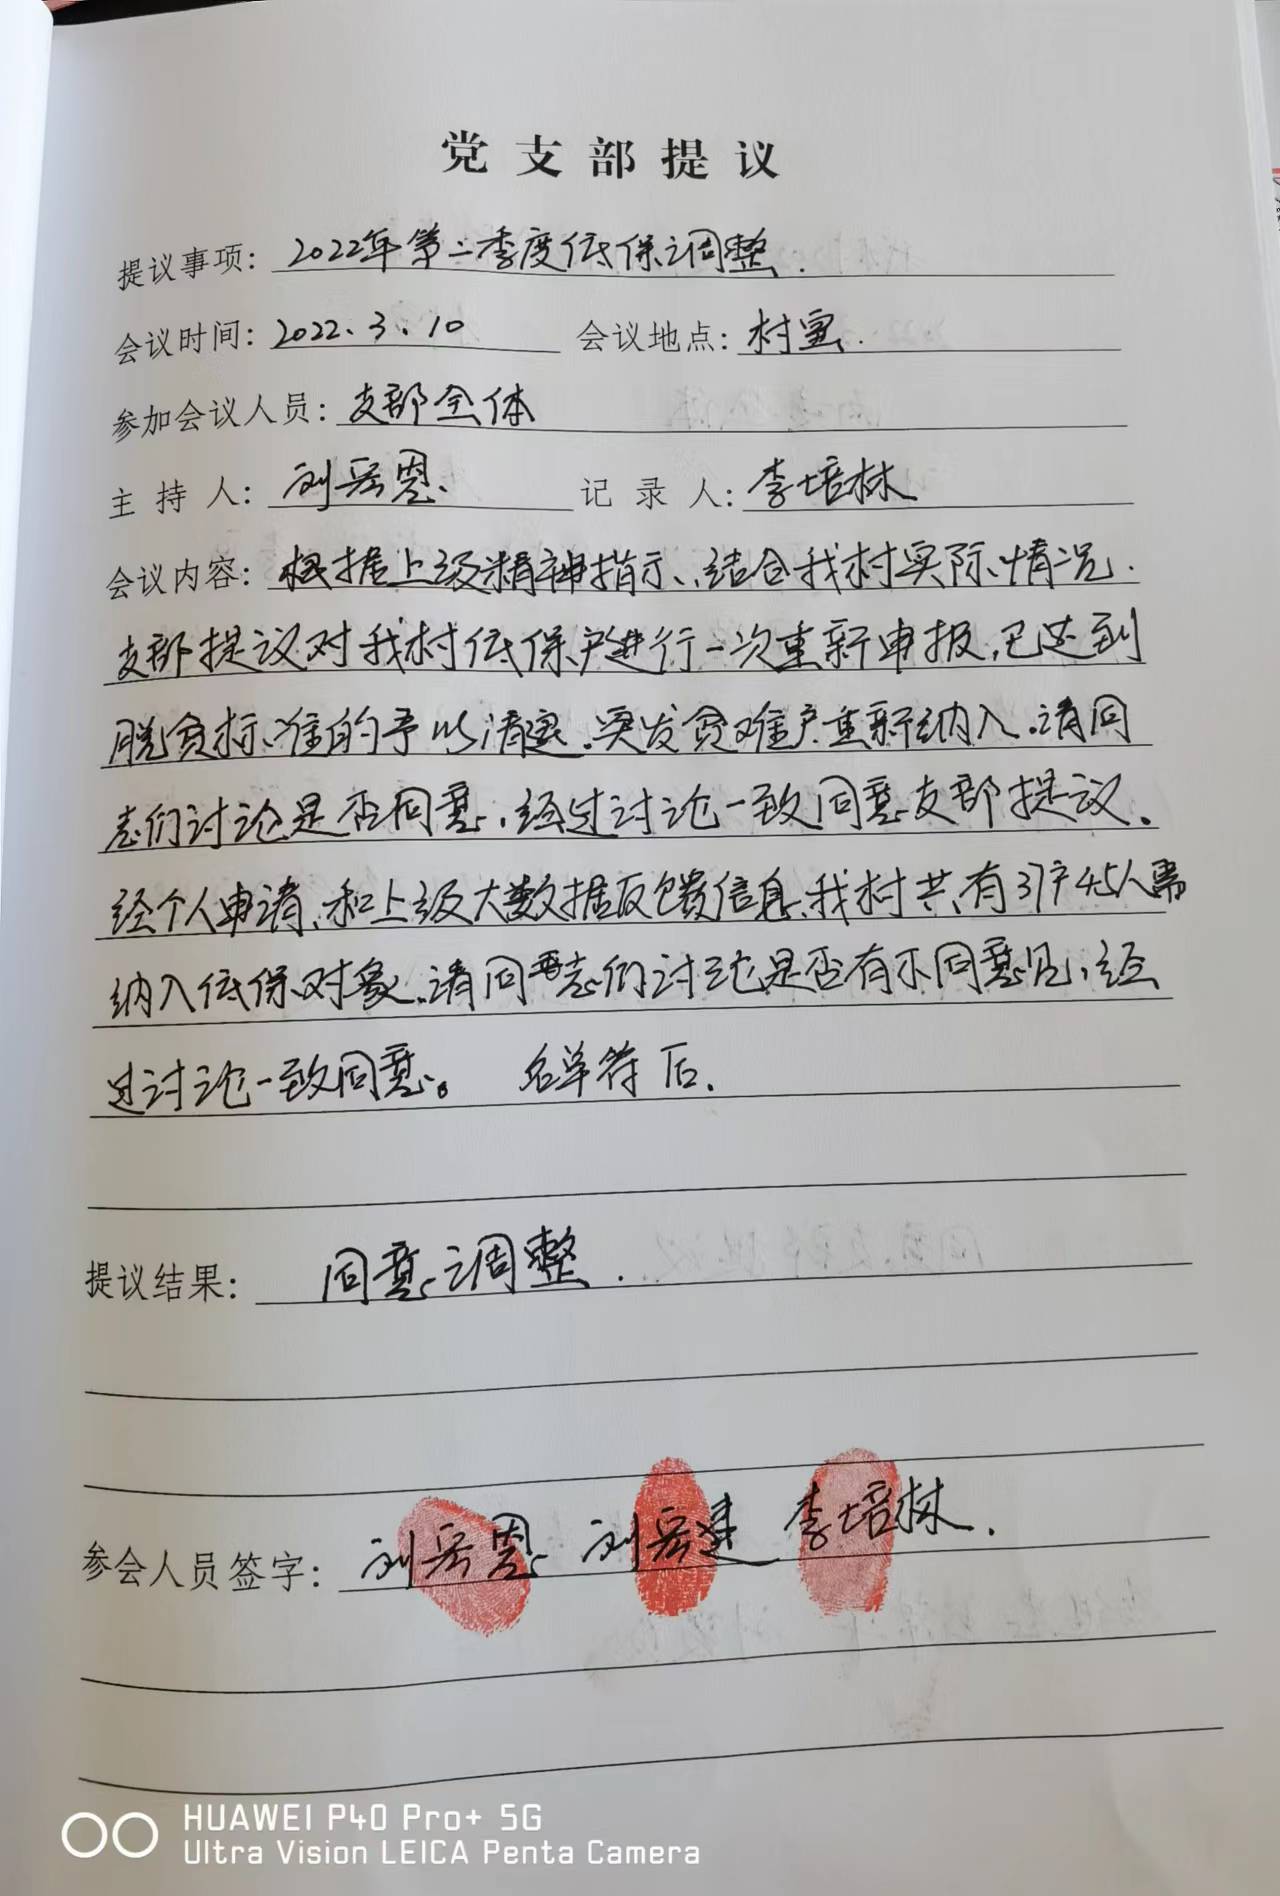 党支部提议
提议事项：2022年第二季度低保调整.
会议时间：2022.3.10 会议地点：村室.
参加会议人员：支部全体
主持人：刘岳恩. 记录人：李培林
会议内容：根据上级精神指示、结合我村实际情况.
支部提议对我村低保户进行一次重新申报，已达到
脱贫标准的予以清退。突发贫难户重新纳入。请同
志们讨论是否同意，经过讨论一致同意支部提议。
经个人申请、和上级大数据反馈信息、我村共有37户45人需
纳入低保对象，请同志们讨论是否有不同意见，经
过讨论一致同意。 名单符后.
提议结果：同意调整.
参会人员签字：刘岳恩 刘岳建 李培林.
HUAWEI P40 Pro+ 5G
Ultra Vision LEICA Penta Camera